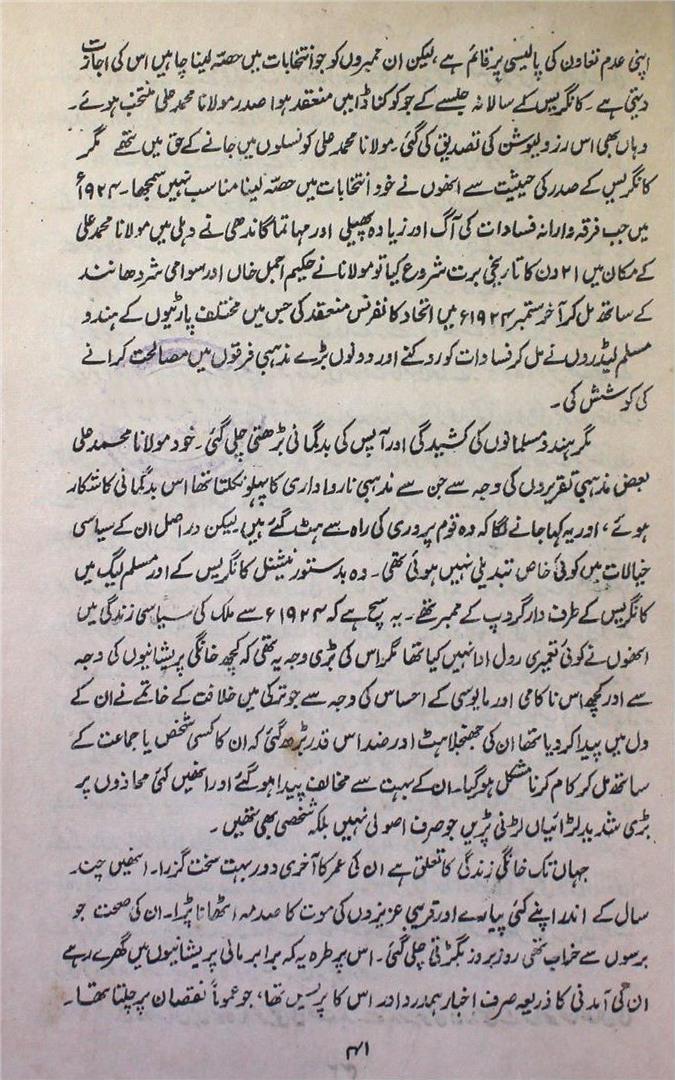 اپنی عدم تعاون کی پالیسی پر قائم ہے، لیکن ان ممبروں کو جو انتخابات میں حصّہ لینا چاہیں اس کی اجازت
دیتی ہے۔ کانگریس کے سالانہ جلسے کے جو کوکناڈا میں منعقد ہوا صدر مولانا محمد علی منتخب ہوئے۔
وہاں بھی اس رزولیوشن کی تصدیق کی گئی۔ مولانا محمد علی کونسلوں میں جانے کے حق میں تھے مگر
کانگریس کے صدر کی حیثیت سے انھوں نے خود انتخابات میں حصّہ لینا مناسب نہیں سمجھا۔ ۱۹۲۴ء
میں جب فرقہ وارانہ فسادات کی آگ اور زیادہ پھیلی اور مہاتما گاندھی نے دہلی میں مولانا محمد علی
کے مکان میں ۲۱ دن کا تاریخی برت شروع کیا تو مولانا نے حکیم اجمل خاں اور سوامی شردھانند
کے ساتھ مل کر آخر ستمبر ۱۹۲۴ء میں اتحاد کانفرنس منعقد کی جس میں مختلف پارٹیوں کے ہندو
مسلم لیڈروں نے مل کر فسادات کو روکنے اور دونوں بڑے مذہبی فرقوں میں مصالحت کرانے
کی کوشش کی۔
مگر ہندو مسلمانوں کی کشیدگی اور آپس کی بدگمانی بڑھتی چلی گئی۔ خود مولانا محمد علی
بعض مذہبی تقریروں کی وجہ سے جن سے مذہبی نارواداری کا پہلو نکلتا تھا اس بدگمانی کا شکار
ہوئے، اور یہ کہا جانے لگا کہ وہ قوم پروری کی راہ سے ہٹ گئے ہیں۔ لیکن دراصل ان کے سیاسی
خیالات میں کوئی خاص تبدیلی نہیں ہوئی تھی۔ وہ بدستور نیشنل کانگریس کے اور مسلم لیگ میں
کانگریس کے طرف دار گروپ کے ممبر تھے۔ یہ سچ ہے کہ ۱۹۲۴ء سے ملک کی سیاسی زندگی میں
انھوں نے کوئی تعمیری رول ادا نہیں کیا تھا مگر اس کی بڑی وجہ یہ تھی کہ کچھ خانگی پریشانیوں کی وجہ
سے اور کچھ اس ناکامی اور مایوسی کے احساس کی وجہ سے جو ترکی میں خلافت کے خاتمے نے ان کے
دل میں پیدا کر دیا تھا ان کی جھنجلاہٹ اور ضد اس قدر بڑھ گئی کہ ان کا کسی شخص یا جماعت کے
ساتھ مل کر کام کرنا مشکل ہو گیا۔ ان کے بہت سے مخالف پیدا ہو گئے اور انھیں کئی محاذوں پر
بڑی شدید لڑائیاں لڑنی پڑیں جو صرف اصولی نہیں بلکہ شخصی بھی تھیں۔
جہاں تک خانگی زندگی کا تعلق ہے ان کی عمر کا آخری دور بہت سخت گزرا۔ انھیں چند
سال کے اندر اپنے کئی پیارے اور قریبی عزیزوں کی موت کا صدمہ اٹھانا پڑا۔ ان کی صحت جو
برسوں سے خراب تھی روز بروز بگڑتی چلی گئی۔ اس پر طرہ یہ کہ برابر مالی پریشانیوں میں گھرے رہے
ان کی آمدنی کا ذریعہ صرف اخبار ہمدرد اور اس کا پریس تھا، جو عموماً نقصان پر چلتا تھا۔
۴۱